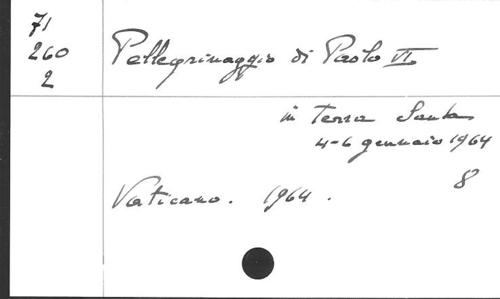 71
260
2
Pellegrinaggio di Paolo VI
in Terra Santa
4-6 gennaio 1964
8
Vaticano. 1964.